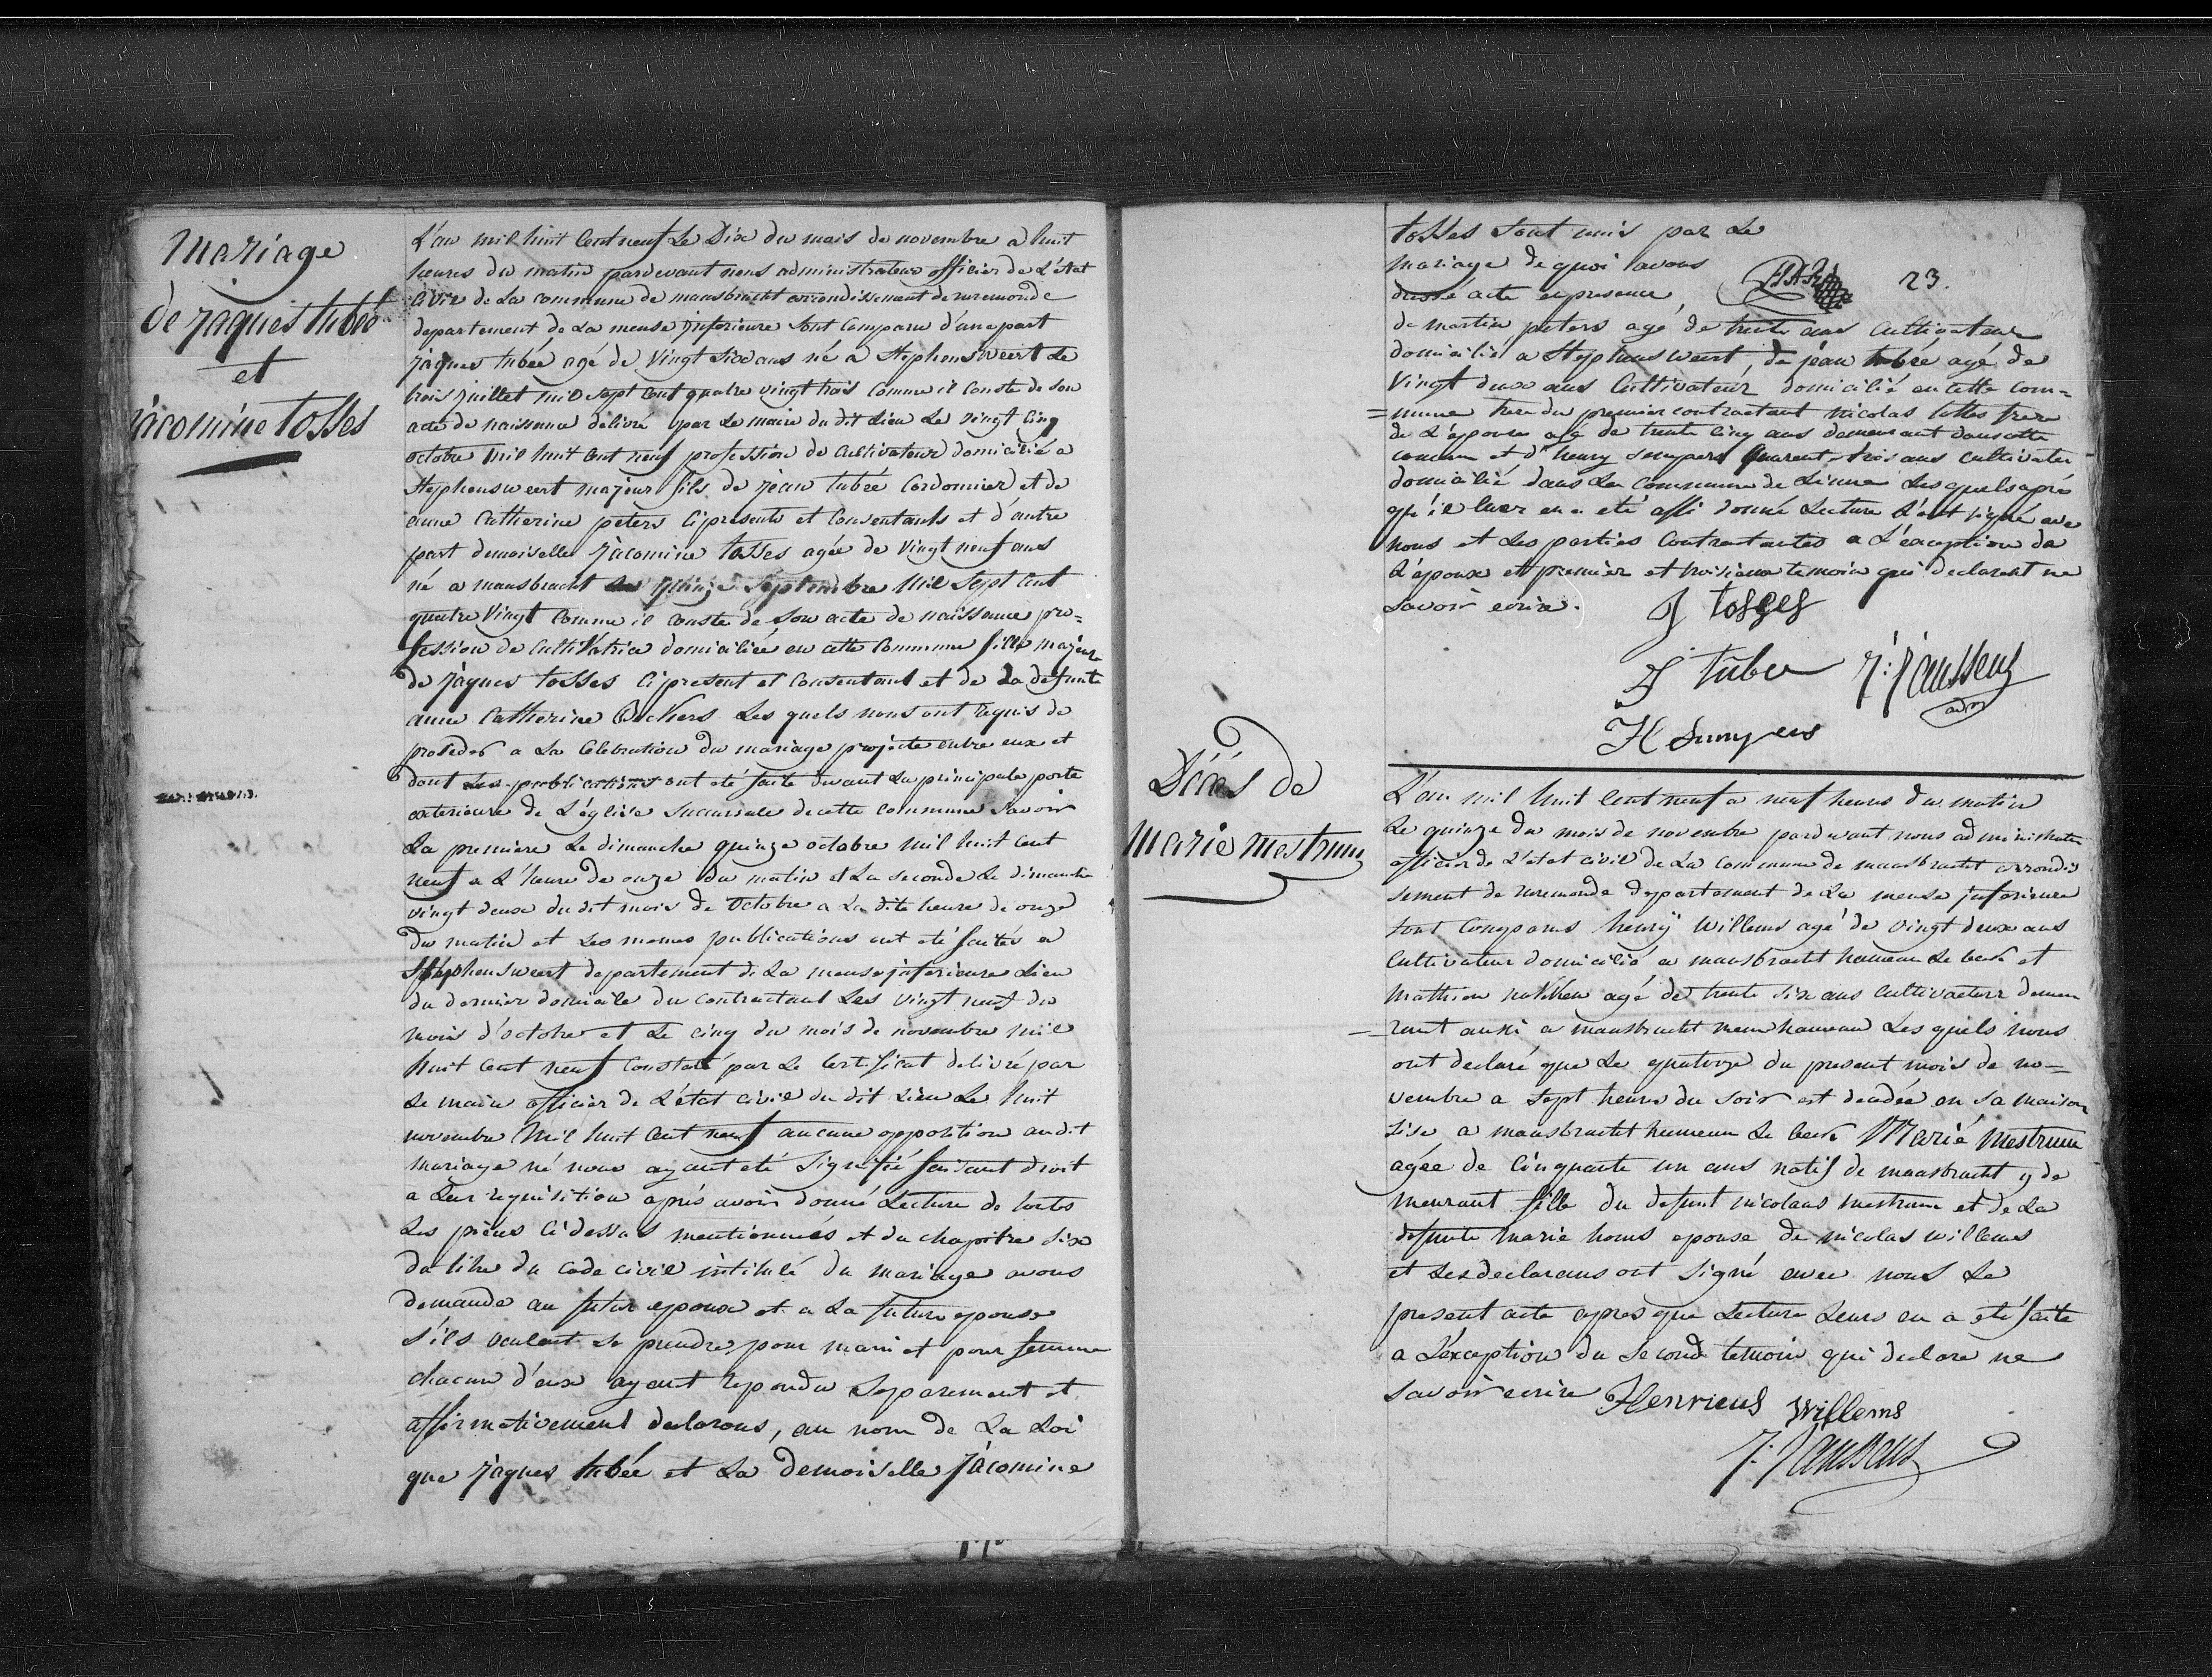 Mariage
de jaques tubée
et
jacomine tosses
L'an mil huit Cent neuf Le Dix du mois de novembre a huit
heures du matin pardevant nous administrateur officier de L'état
Civil de La commune de maasbracht arrondissement de ruremonde
departement de La meuse jnferieure sont Comparu d'une part
jaques tubée agé de Vingt Six ans né a Stephensweert Le
trois juillet mil sept Cent quatre vingt trois Comme il Conste de son
acte de naissance délivré par Le maire du dit Lieu Le vingt Cinq
octobre mil huit Cent neuf profession de Cultivateur domicilié a
Stephensweert majeur fils de jean tubée Cordonnier et de
anne Catherine peters Cipresents et Consentants et d'autre
part demoiselle jacomine tosses agée de Vingt neuf ans
né a maasbracht quinze Septembre Mil Sept Cent
quatre Vingt Comme il conste de Son acte de naissance pro=
fession de Cultivatrice domiciliée en cette Commune fille majeure
de jaques tosses Cipresent et Consentant et de La defunte
anne Catherine Les quels nous ont requis de
proseder a La Célébration du mariage projeté entre eux et
dont Les publications ont eté faite devant La principale porte
exterieure de L'église Succursale de cette Commune Savoir
La premiere Le dimanche quinze octobre mil huit Cent
neuf a L'heure de onze du matin et La seconde Le dimanche
vingt deux du dit mois de Octobre a La dite heure de onze
du matin et Les memes publications ont eté faites a
Stephensweert departement de La meuse jnferieure Lieu
du dernier domicile du contractant Les vingt neuf du
mois d'octobre et Le cinq du mois de novembre mil
huit Cent neuf Constaté par Le Certificat délivré par
Le maire officier de L'état civil du dit Lieu Le huit
novembre Mil huit Cent neuf aucune opposition audit
mariage né nous ayant eté Signifié faisant droit
a Leur requisition aprés avoir donné Lecture de toutes
Les piéces Cidessus mentionnées et du chapitre Six
du titre du Code civil intitulé du mariage avons
demande au futur epoux et a La future epouse
S'ils veulent Se prendre pour mari et pour femme
chacun d'eux ayant repondu Separement et
affirmativement declarons, au nom de La Loi
que jaques tubée et La demoiselle jacomine
23.
tosses sont unis par Le
mariage de quoi avons
dressé acte en presence
de martin peters agé de trente ans Cultivateur
domicilié a Stephensweert, de jean tubée agé de
Vingt deux ans Cultivateur domicilié en cette com=
=mune frere du premier contractant nicolas tosses frere
de L'epouse agé de trente Cinq ans demeurant dans cette
commune et d'henry quarent trois ans Cultivateur
domicilié dans La Commune de Linne Lesquels aprés
qu'il Leur en a eté donné Lecture L'ont signé avec
nous et Les parties Contractantes a L'exception de
L'epouse et premier et troisieme temoin qui declarent ne
savoir ecrire.
J tosses
J tube J: Janssens
H
Décés de
Marie Mestrum
L'an mil huit Cent neuf a neuf heures du matin
Le quinze du mois de novembre pardevant nous administrateur
officier de L'etat civil de La Commune de maasbracht arrondis
sement de ruremonde departement de La meuse jnferieure
sont Comparus henrÿ Willems agé de vingt deux ans
Cultivateur domicilié a maasbracht hameau Le beek et
Mathieu agé de trente Six ans Cultivateur demeu
=rant aussi a maasbracht meme hameau Les quels nous
ont declaré que Le quatorze du present mois de no=
vembre a Sept heures du Soir est decedée en Sa maison
Sise a maasbracht hameau Le beek Marie Mestrum
agée de Cinquante un ans natif de maasbracht y de
meurant fille du defunt nicolaus mestrum et de La
defunte Marie epouse de nicolas willems
et Les declarans ont Signé avec nous Le
present acte apres que Lecture Leurs en a eté faite
a L'exception du Second temoin qui declare ne
savoir ecrire Henricus Willems
J: Janssens